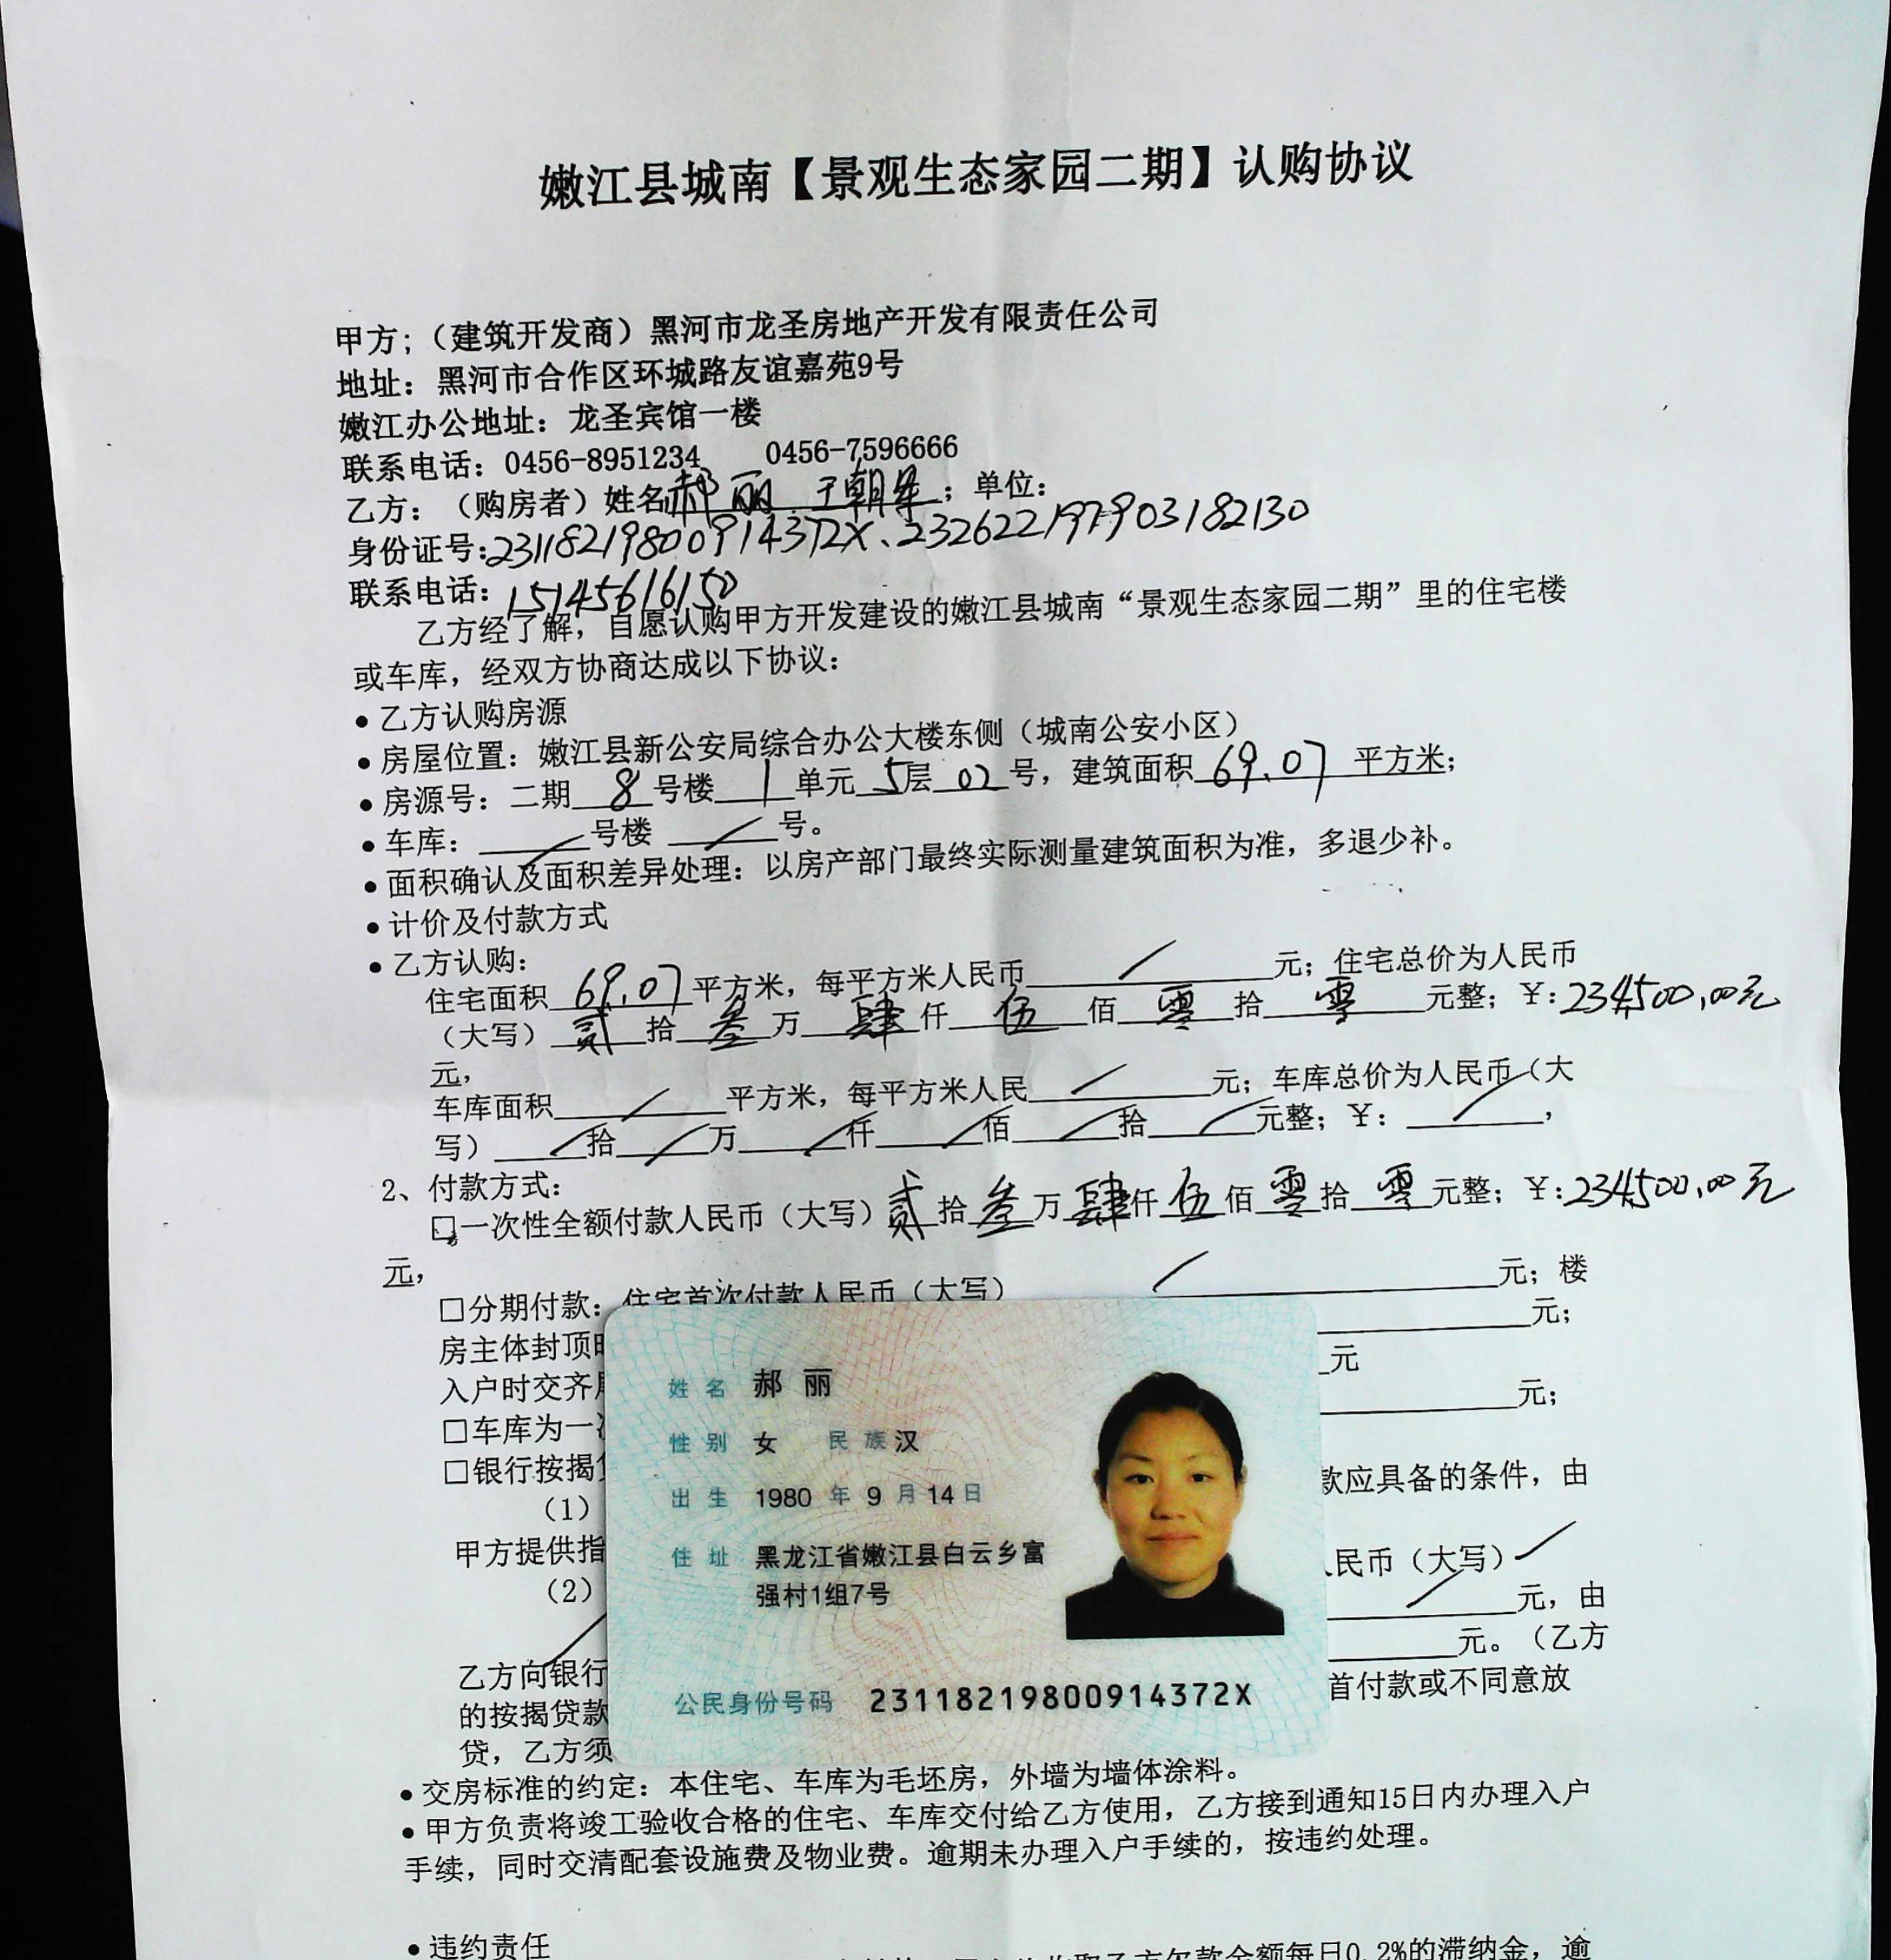 嫩江县城南【景观生态家园二期】认购协议
甲方;（建筑开发商）黑河市龙圣房地产开发有限责任公司
地址：黑河市合作区环城路友谊嘉苑9号
嫩江办公地址：龙圣宾馆一楼
联系电话：0456-8951234 0456-7596666
乙方：（购房者）姓名郝丽 ；单位：
身份证号:23118219800914372X、232622197903182130
联系电话：15145616150
乙方经了解，自愿认购甲方开发建设的嫩江县城南“景观生态家园二期”里的住宅楼
或车库，经双方协商达成以下协议：
●乙方认购房源
●房屋位置：嫩江县新公安局综合办公大楼东侧（城南公安小区）
●房源号：二期 8 号楼 1 单元 5 层 02 号，建筑面积 69.07 平方米；
●车库：/ 号楼 / 号。
●面积确认及面积差异处理：以房产部门最终实际测量建筑面积为准，多退少补。
●计价及付款方式
●乙方认购：
住宅面积 69.07 平方米，每平方米人民币 / 元；住宅总价为人民币
（大写） 贰 拾 叁 万 肆 仟 伍 佰 零 拾 零 元整；￥:234500.00元
元，
车库面积 / 平方米，每平方米人民 / 元；车库总价为人民币（大
写） / 拾 / 万 / 仟 / 佰 / 拾 / 元整；￥：/，
2、付款方式：
□一次性全额付款人民币（大写）贰 拾 叁 万 肆 仟 伍 佰 零 拾 零 元整；￥:234500.00元
元，
□分期付款：住宅首次付款人民币（大写） / 元；楼
房主体封顶 元；
入户时交齐 元
□车库为一 元；
□银行按揭
（1） 款应具备的条件，由
甲方提供指
（2） 民币（大写）/
/ / 元，由
乙方向银行 元。（乙方
的按揭贷款 首付款或不同意放
贷，乙方须
姓名 郝丽
性别 女 民族 汉
出生 1980 年 9 月 14 日
住址 黑龙江省嫩江县白云乡富
强村1组7号
公民身份号码 23118219800914372X
●交房标准的约定：本住宅、车库为毛坯房，外墙为墙体涂料。
●甲方负责将竣工验收合格的住宅、车库交付给乙方使用，乙方接到通知15日内办理入户
手续，同时交清配套设施费及物业费。逾期未办理入户手续的，按违约处理。
●违约责任
乙方欠款金额每日0.2%的滞纳金，逾